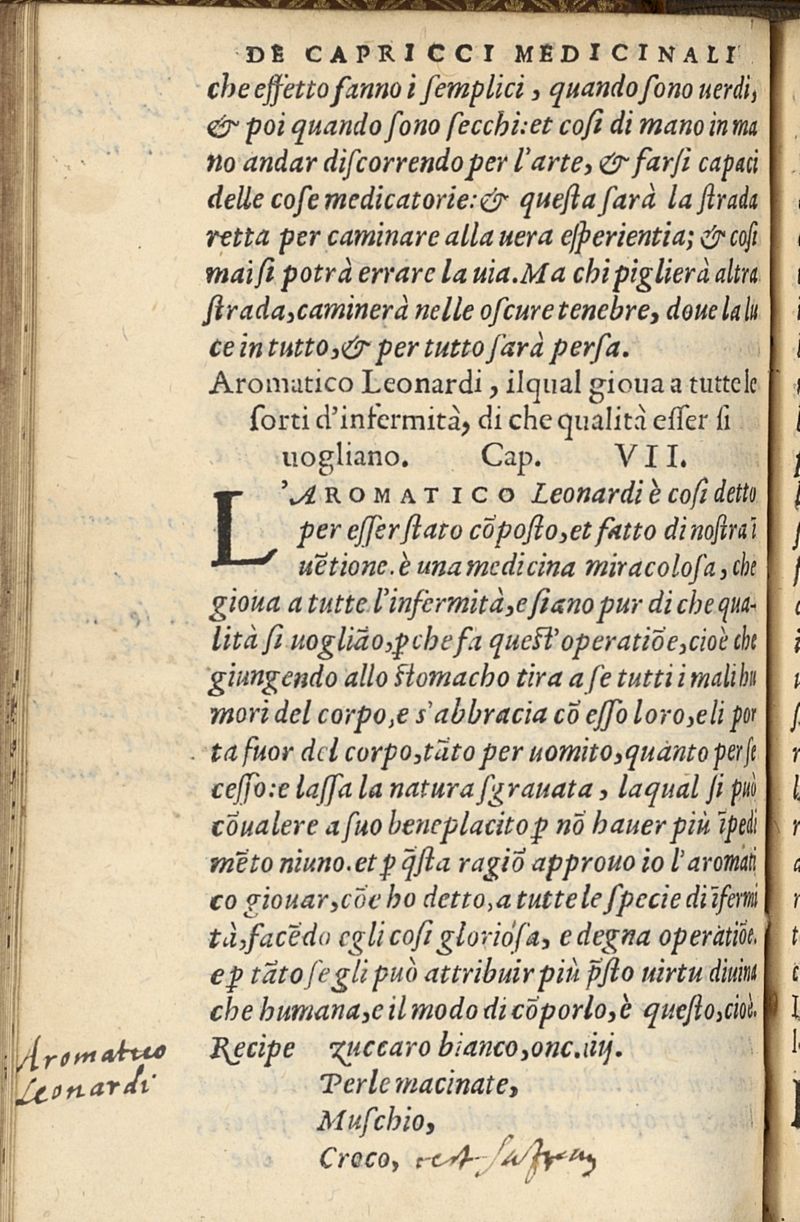 DE CAPRICCI MEDICINALI
che effetto fanno i ſemplici, quando ſono uerdi,
& poi quando ſono ſecchi: et coſi di mano in ma
no andar diſcorrendo per l'arte, & farſi capaci
delle coſe medicatorie: & queſta ſarà la ſtrada
retta per caminare alla uera eſperientia; & coſi
mai ſi potrà errare la uia. Ma chi piglierà altra
ſtrada, caminerà nelle oſcure tenebre, doue la lu
ce in tutto, & per tutto ſarà perſa.
Aromatico Leonardi, ilqual gioua a tutte le
ſorti d'infermità, di che qualità eſſer ſi
uogliano. Cap. VII.
L'AROMATICO Leonardi è coſi detto
per eſſer ſtato cõpoſto, et fatto di noſtra ĩ
uẽtione. è una medicina miracoloſa, che
gioua a tutte l'infermità, e ſiano pur di che qua-
lità ſi uogliāo, ꝑche fa queſt'operatiõe, cioè che
giungendo allo ſtomacho tira a ſe tutti i mali hu
mori del corpo, e s'abbracia cõ eſſo loro, e li por
ta fuor del corpo, tãto per uomito, quanto per ſe
ceſſo: e laſſa la natura ſgrauata, laqual ſi può
cõualere a ſuo beneplacito ꝑ nõ hauer più ĩpedi
mẽto niuno. et ꝑ q̃ſta ragiõ approuo io l'aromati
co giouar, cõe ho detto, a tutte le ſpecie di ĩfermi
tà, facẽdo egli coſi glorioſa, e degna operatiõe.
e ꝑ tãto ſe gli può attribuir più p̃ſto uirtu diuina
che humana, e il modo di cõporlo, è queſto, cioè.
Recipe zuccaro bianco, onc. iiij.
Aromatico
Leonardi
Perle macinate,
Muſchio,
Croco, eſt ſafran